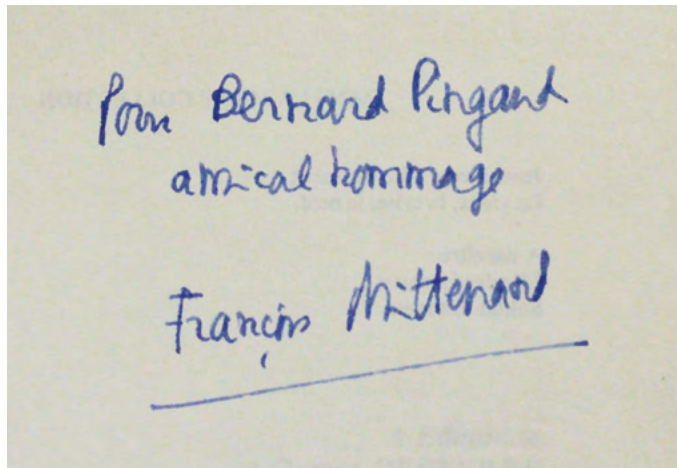 Pour Bernard Pingaud
amical hommage
François Mitterrand